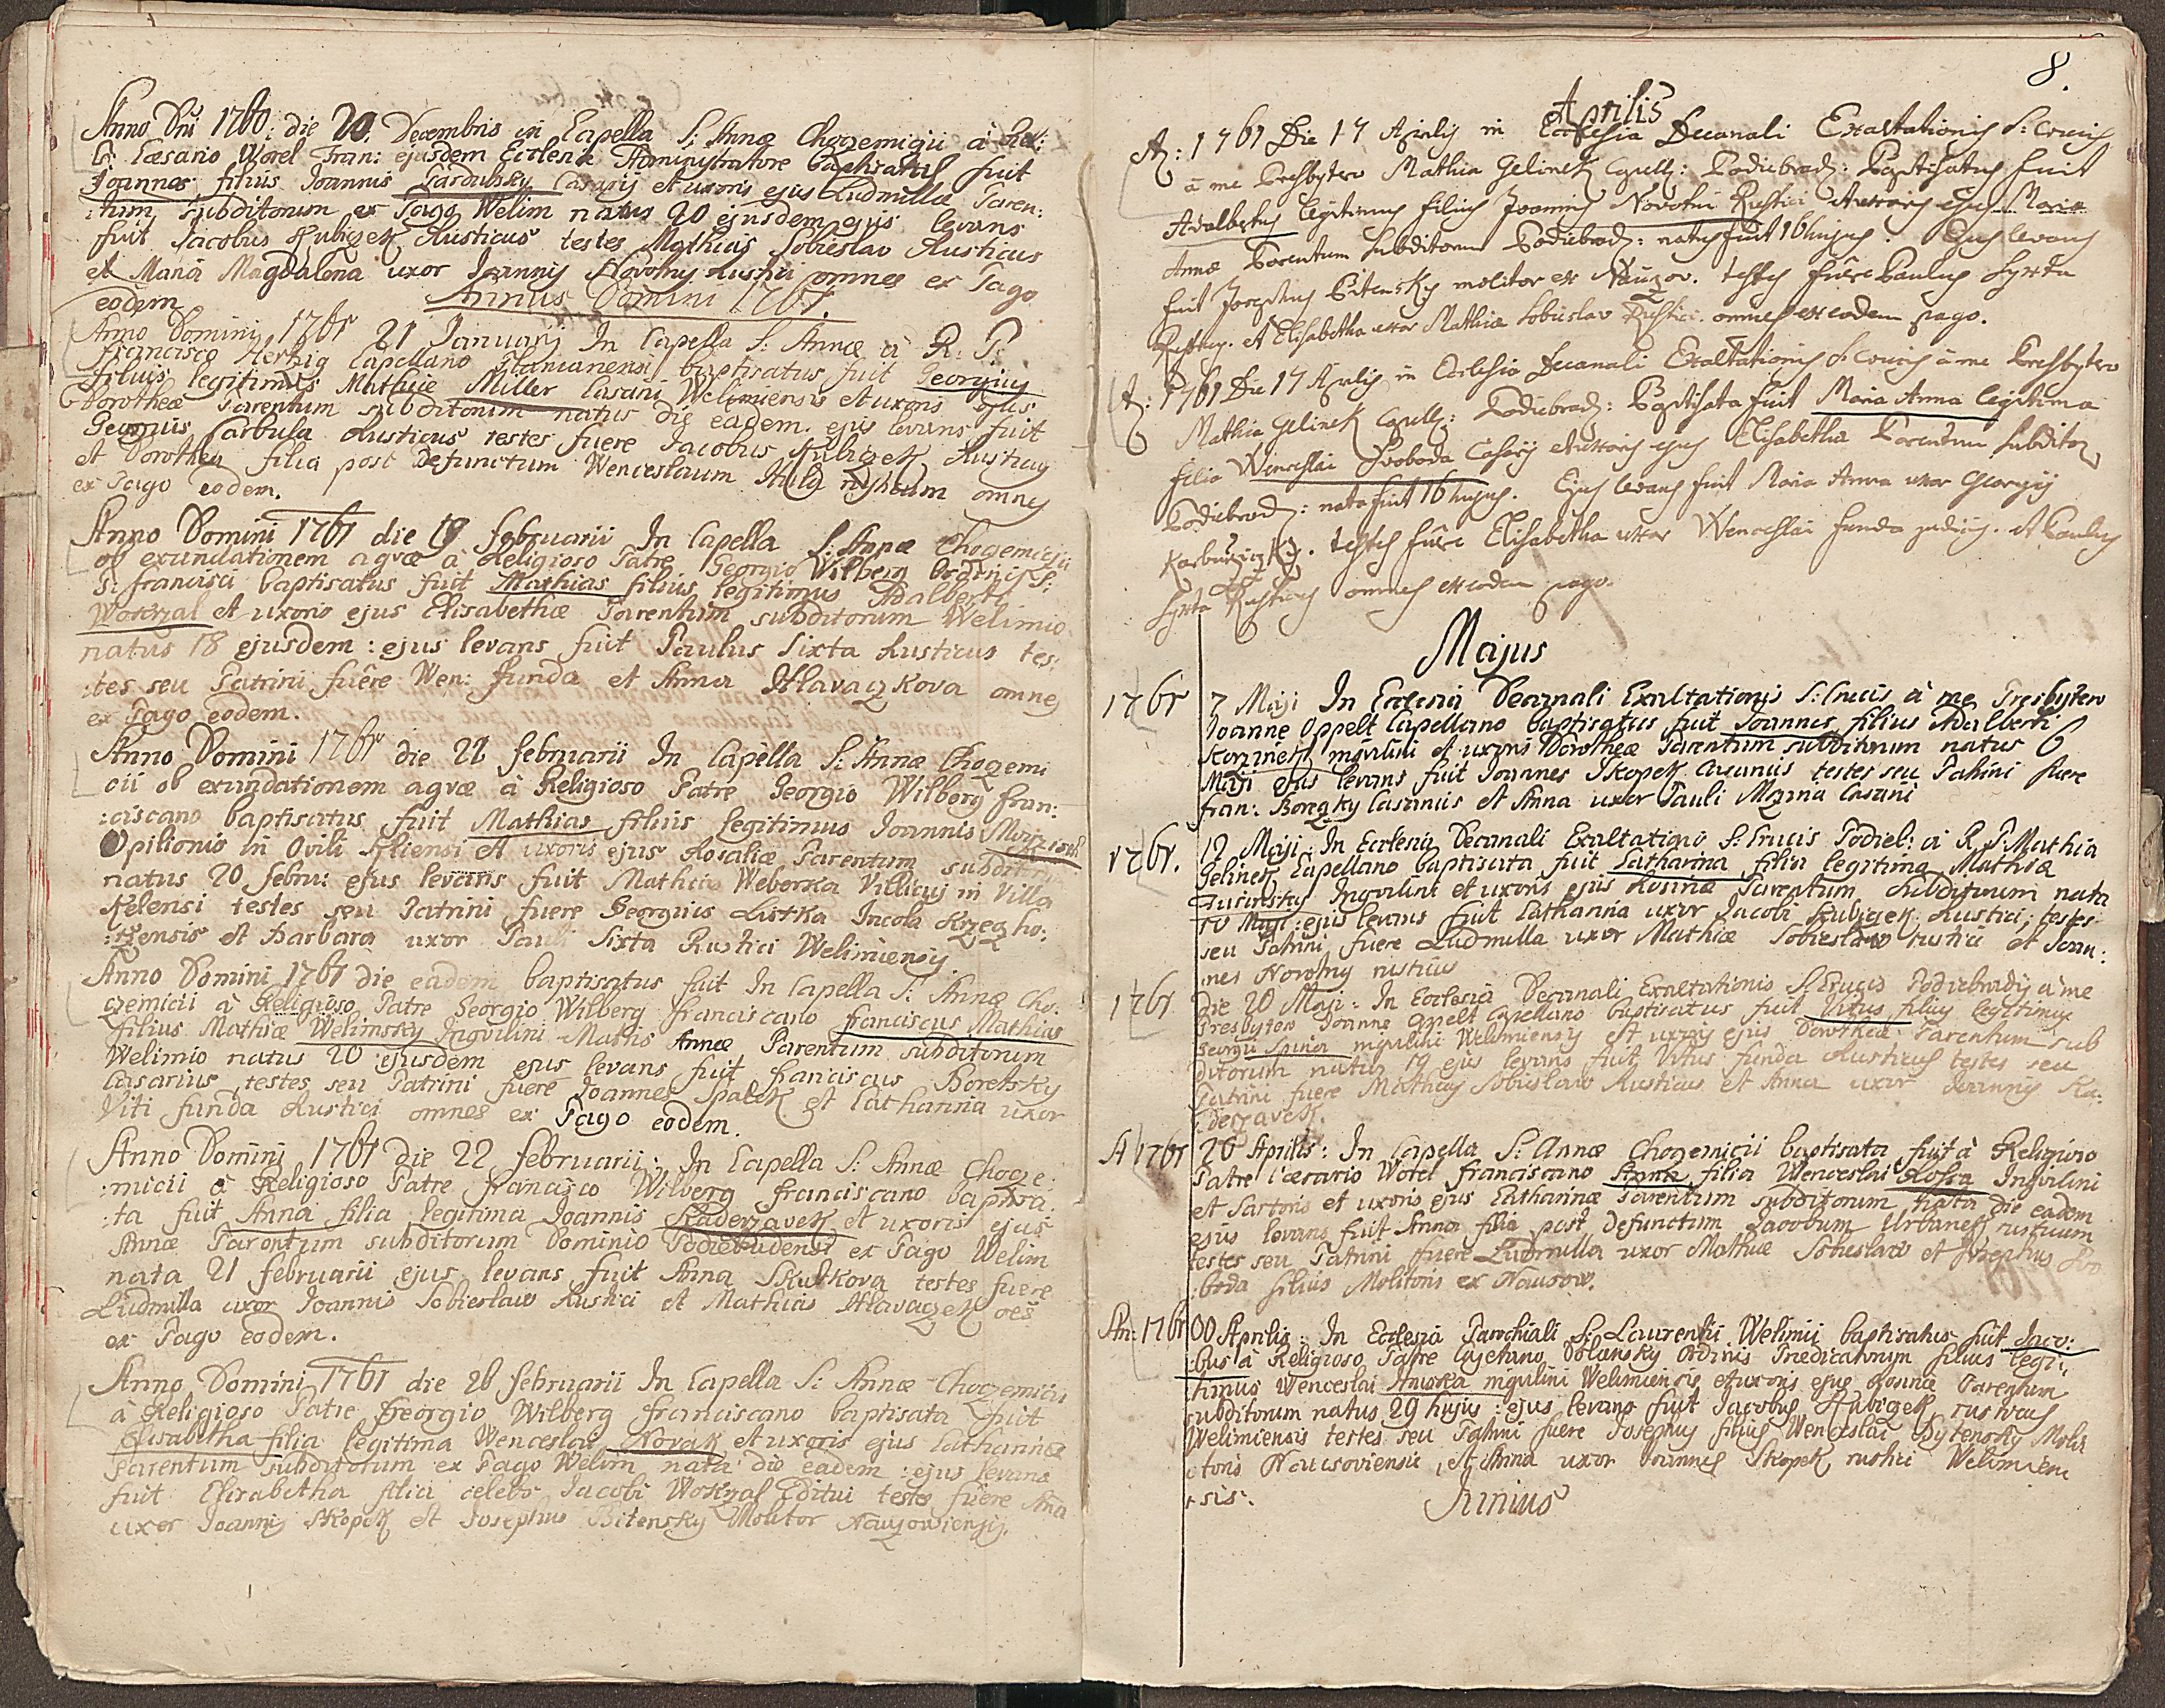 Anno Dni 1760: die 20. Decembris in Capella S: Annæ Chozemigii à
Cæsario Worel Fran: ejusdem Ecclenæ Administratore baptisatus fuit
Joannes filius Joannis Pardubsky Casarij et uxoris ejus Ludmillæ Paren:
:tum subditorum ex Pago Welim natus 20 ejusdem ejus levans
fuit Jacobus Kubiczek Rusticus testes Mathias Sobieslav Rusticus
et Maria Magdalena uxor Joannis Novotny Rustici omnes ex Pago
eodem
Annus Domini 1761.
Anno Domini 1761 21 Januarij In Capella S: Annæ à R: P:
Francisco Hertzig Capellano Planianensi baptisatus fuit Georgius
filius legitimus Mathiæ Miller Casarii Welimiensis et uxoris ejus
Dorotheæ Parentum subditorum natus die eadem. ejus levans fuit
Georgius Carbula Rusticus testes fuere Jacobus Kubiczek Rusticus
et Dorothea filia post Defunctum Wenceslaum omnes
ex Pago eodem.
Anno Domini 1761 die 19 Februarii In Capella S: Annæ Chozemicii
ob exundationem aqvæ à Religioso Patre Georgio Wilberg Ordinis S:
P: Francisci baptisatus fuit Mathias filius legitimus Adalberti
Wokrzal et uxoris ejus Elisabethæ Parentum subditorum Welimio
natus 18 ejusdem: ejus levans fuit Paulus Sixta Rusticus tes:
:tes seu Patrini fuêre Wen: Funda et Anna Hlavaczkova omnes
ex Pago eodem.
Anno Domini 1761 die 21 Februarii In Capella S: Annæ Chozemi
cii ob exundationem aqvæ à Religioso Patre Georgio Wilberg Fran:
:ciscano baptisatus fuit Mathias filius legitimus Joannis
Opilionis in Ovili et uxoris ejus Rosaliæ Parentum subditorum
natus 20 Febru: ejus levans fuit Mathias Weberka Villicus in Villa
Kelensi testes seu Patrini fuere Georgius Listka Incola Krzeczho:
:rzensis et Barbara uxor Pauli Sixta Rustici Welimiensis
Anno Domini 1761 die eadem baptisatus fuit In Capella S: Annæ Cho:
czemicii à Religioso Patre Georgio Wilberg Franciscano Franciscus Mathias
filius Mathiæ Welimsky Inqvilini Matris Annæ Parentum subditorum
Welimio natus 20 ejusdem ejus levans fuit Franciscus Boretzky
Casarius testes seu Patrini fuere Joannes Spalek et Catharina uxor
Viti Funda Rustici omnes ex Pago eodem.
Anno Domini 1761 die 22 Februarii: In Capella S: Annæ Chocze:
:micii à Religioso Patre Francisco Wilberg Franciscano baptisa:
:ta fuit Anna filia legitima Joannis Kaderzavek et uxoris ejus
Annæ Parentum subditorum Dominio Podiebradensi ex Pago Welim
nata 21 Februarii ejus levans fuit Anna Skutkova testes fuere
Ludmilla uxor Joannis Sobieslaw Rustici et Mathias Hlavaczek oēs
ex Pago eodem.
Anno Domini 1761 die 26 Februarii In Capella S: Annæ Choczemicii
à Religioso Patre Georgio Wilberg Franciscano baptisata fuit
Elisabetha filia legitima Wenceslai Novak et uxoris ejus Catharinæ
Parentum subditorum ex Pago Welim nata die eadem: ejus levans
fuit Elisabetha filia celebs Jacobi Wokrzal Editui testes fuere Ana
uxor Joannis Skopek et Josephus Bitensky Molitor Nauzowiensis.
8.
Aprilis
A: 1761 Die 17 Aprilis in Ecclesia Decanali Exaltationis S: Crucis
à me Presbytero Mathia Gelinek Capell: Podiebrad: Baptisatus fuit
Adalbertus legitimus filius Joannis Novotni Rustici et uxoris ejus Mariæ
Annæ Parentum Subditorum Podiebrad: natus fuit 16 hujus. Ejus levans
fuit Josephus Bitensky molitor ex Nauzov. testes fuêre Paulus Syxta
Rusticus. et Elisabetha uxor Mathiæ Sobieslav Rustici. omnes ex eodem pago.
A: 1761 Die 17 Aprilis in Ecclesia Decanali Exaltationis S: Crucis à me Presbytero
Mathia Gelinek Capell: Podiebrad: Baptisata fuit Maria Anna legitima
filia Wenceslai Svoboda Casarij et uxoris ejus Elisabethæ Parentum Subditor
Podiebrad: nata fuit 16 hujus. Ejus levans fuit Maria Anna uxor Georgij
testes fuêre Elisabetha uxor Wenceslai Funda judicis. et Paulus
Syxta Rusticus omnes ex eodem pago.
Majus
1761 7 Maji In Ecclesia Decanali Exaltationis S: Crucis à me Presbytero
Joanne Oppelt Capellano baptisatus fuit Joannes filius Adalberti
Korzinek inqvilini et uxoris Dorotheæ Parentum subditorum natus 6
Maji ejus levans fuit Joannes Skopek Casarius testes seu Patrini fuere
Fran: Boreczky Casarius et Anna uxor Pauli Mazna Casarii
1761. 12 Maji: In Ecclesia Decanali Exaltationis S: Crucis Podieb: à R. P. Mathia
Gelinek Capellano baptisata fuit Catharina filia legitima Mathiæ
Inqvilini et uxoris ejus Rosinæ Parentum subditorum nata
10 Maji: ejus levans fuit Catharina uxor Jacobi Kubiczek Rustici; testes
seu Patrini fuere Ludmilla uxor Mathiæ Sobieslaw rustici et Joan:
:nes Novotny rusticus
1761 Die 20 Maji: In Ecclesia Decanali Exaltationis S: Crucis Podiebradij à me
Presbytero Joanne Oppelt Capellano baptisatus fuit Vitus filius legitimus
Georgii Spina inqvilini Welimiensis et uxoris ejus Dorotheæ Parentum sub
ditorum natus 19 ejus levans fuit Vitus Funda Rusticus testes seu
Patrini fuere Mathias Sobieslaw Rusticus et Anna uxor Joannis Ka:
:derzavek.
A 1761 26 Aprilis: In Capella S: Annæ Chozemicii baptisata fuit à Religioso
Patre Cæsario Worel Franciscano Anna filia Wenceslai Kossa Inqvilini
et Sartoris et uxoris ejus Catharinæ Parentum subditorum nata die eadem
ejus levans fuit Anna filia post defunctum Jacobum Urbanek rusticum
testes seu Patrini fuere Ludmilla uxor Mathiæ Sobieslaw et Josephus Svo
:boda filius Molitoris ex Nausow.
An: 1761 30 Aprilis: In Ecclesia Parochiali S: Laurentii Welimii baptisatus fuit Jaco:
:bus à Religioso Patre Cajetano Dolansky Ordinis Prædicatorum filius legi:
:timus Wenceslai Hruska inqvilini Welimiensis et uxoris ejus Rosinæ Parentum
subditorum natus 29 hujus: ejus levans fuit Jacobus Kubiczek rusticus
Welimiensis testes seu Patrini fuere Josephus filius Wenceslai Bytensky Moli
:toris Naucsoviensis, et Anna uxor Joannis Skopek rustici Welimien
:sis.
Junius